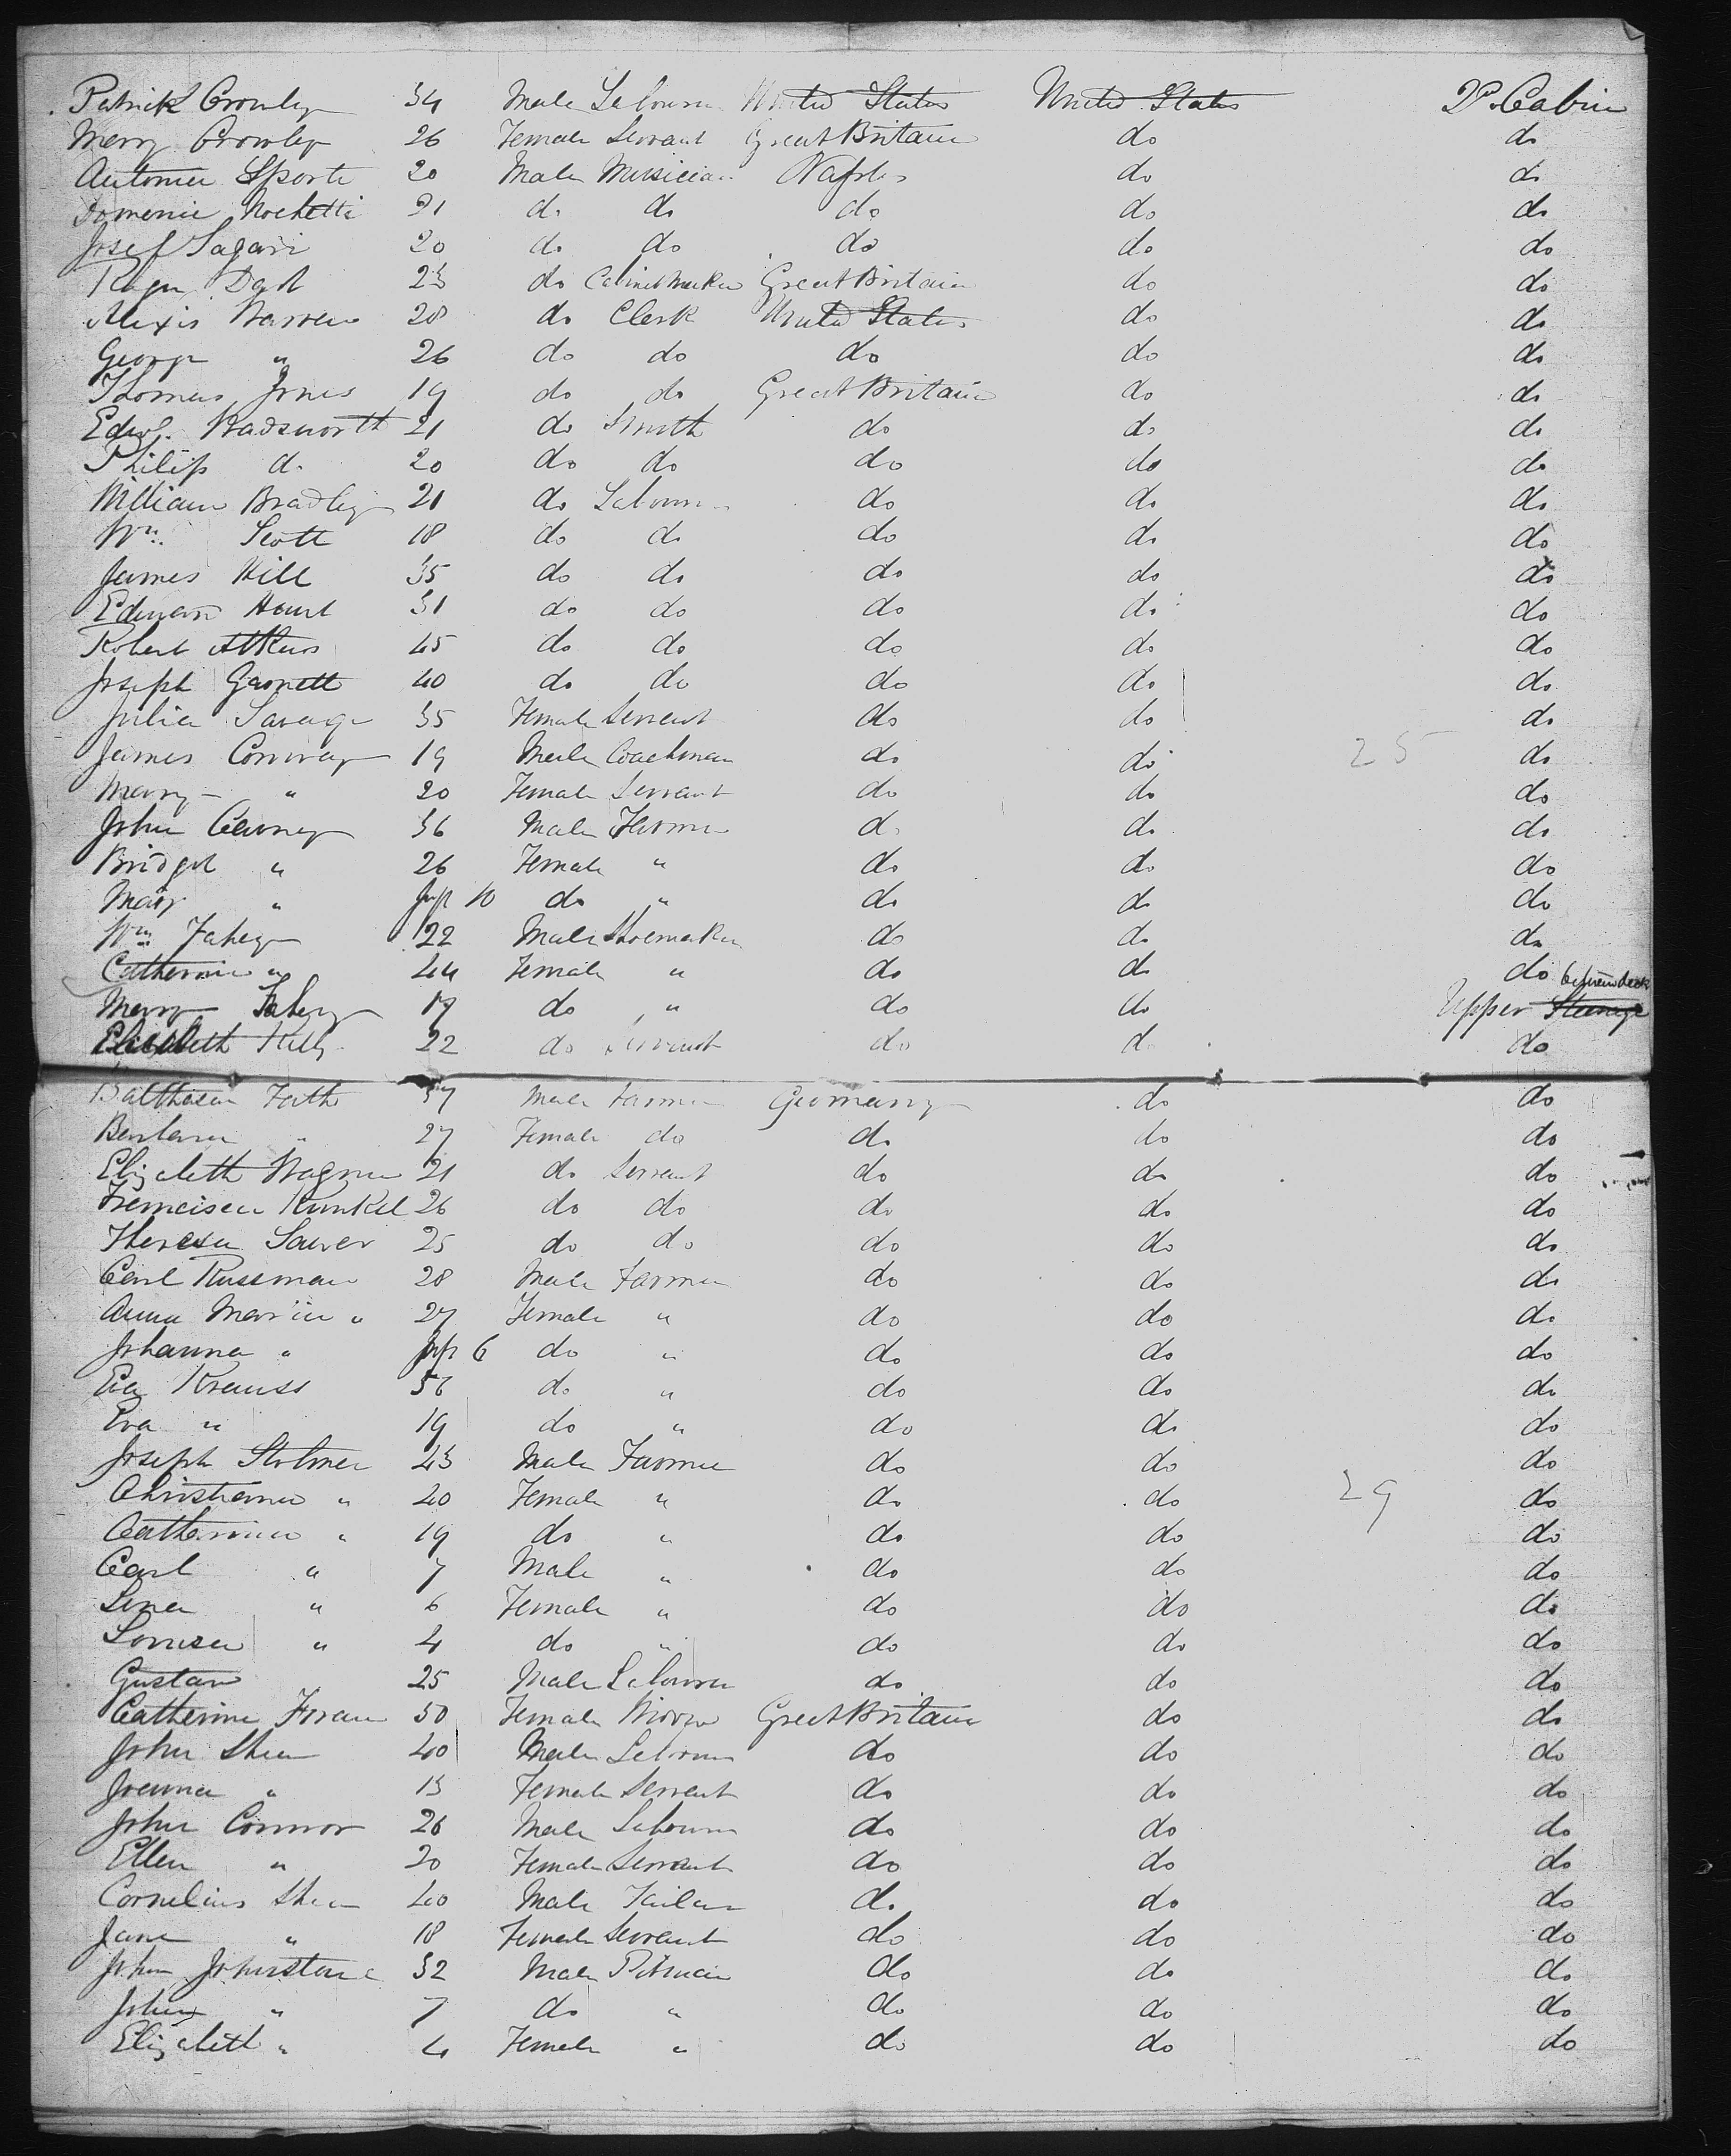 Patrick Crowley 34 Male Labourer United States United States 2d Cabin
Mary Crowley 26 Female Servant Great Britain do do
Antonia Sporte 20 Male Musician Naples do do
Domenic Rochetti 21 do do do do do
Josef Sagari 20 do do do do do
23 do Cabinet Maker Great Britain do do
Alexis Warren 28 do Clerk United States do do
George " 26 do do do do do
Thomas Jones 19 do do Great Britain do do
Edwd. Wadsworth 21 do Smith do do do
Philip do 20 do do do do do
William Bradley 21 do Labourer do do do
Wm. Scott 18 do do do do do
James Hill 35 do do do do do
Edward Hunt 31 do do do do do
Robert Atkins 45 do do do do do
Joseph Garnett 40 do do do do do
Julia Savage 35 Female Servant do do do
James Conway 19 Male Coachman do do 25 do
Mary " 20 Female Servant do do do
John Cearney 36 Male Farmer do do do
Bridget " 26 Female " do do do
Mary " Inft 10 do " do do do
Wm. Fahey 22 Male Shoemaker do do do
Catherine " 44 Female " do do do
Mary Fahey 17 do " do do Upper Steerage between deck
Elizabeth Kelly 22 do Servant do do do
Balthasar Fath 37 Male Farmer Germany do do
Barbara " 27 Female do do do do
Elizabeth Wagner 21 do Servant do do do
Francisca Kunkel 26 do do do do do
Theresa Sauer 25 do do do do do
Carl Russman 28 Male Farmer do do do
Anna Maria " 27 Female " do do do
Johanna " Inft 6 do " do do do
Eva Krauss 56 do " do do do
Eva " 19 do " do do do
Joseph 43 Male Farmer do do do
Christiana " 40 Female " do do 29 do
Catherina " 19 do " do do do
Carl " 7 Male " do do do
Lina " 6 Female " do do do
Louisa " 4 do " do do do
Gustav 25 Male Labourer do do do
Catherine Foran 50 Female Widow Great Britain do do
John Shea 40 Male Labourer do do do
Joanna " 13 Female Servant do do do
John Connor 26 Male Labourer do do do
Ellen " 20 Female Servant do do do
Cornelius Shea 40 Male Tailor do do do
Jane " 18 Female Servant do do do
John Johnstone 32 Male Pitman do do do
John " 7 do " do do do
Elizabeth " 4 Female " do do do